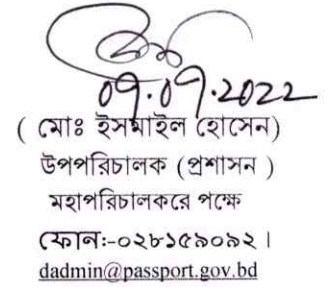 ০৭.০৭.২০২২
( মোঃ ইসমাইল হোসেন)
উপপরিচালক (প্রশাসন )
মহাপরিচালকরে পক্ষে
ফোন:-০২৮১৫৯০৯২।
dadmin@passport.gov.bd